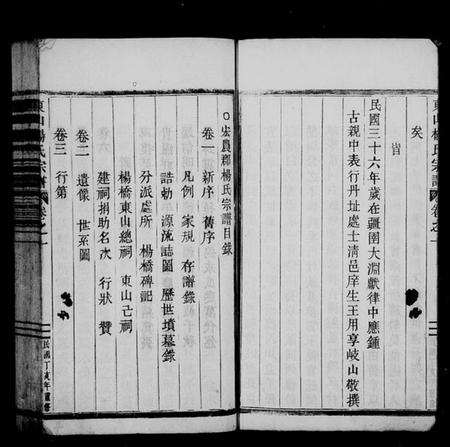 東山楊氏宗譜 卷之一
矣
旹
民國三十六年歲在疆圉大淵獻律中應鍾
古親中表行丹址處士清邑庠生王用享岐山敬撰
○宏農郡楊氏宗譜目錄
卷一 新序 舊序
凡例 家規 存譜錄
誥勅 源流誌圖 歷世墳墓錄
分派處所 楊橋碑記
楊橋東山總祠 東山己祠
建祠捐助名次 行狀 贊
卷二 遺像 世系圖
卷三 行第
東山楊氏宗譜 卷之一
民國丁亥年重修